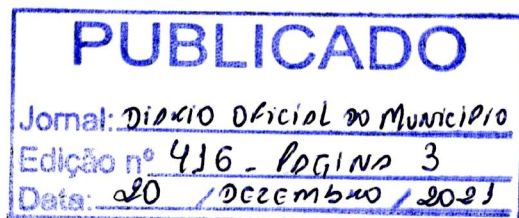 PUBLICADO
Jornal: DIÁRIO OFICIAL DO MUNICÍPIO
Edição nº 416 - PAGINA 3
Data: 20 / DEZEMBRO / 2021